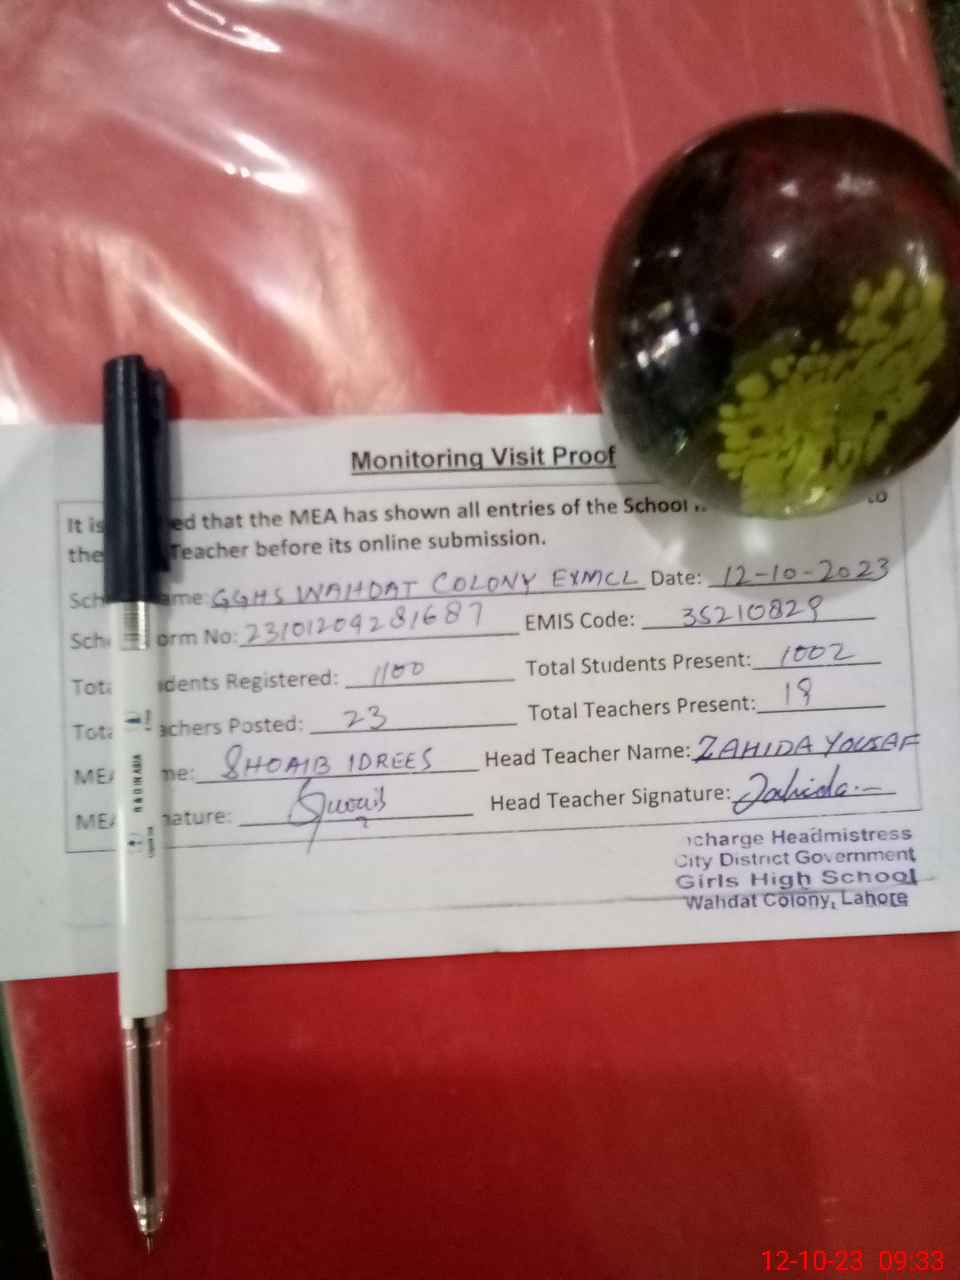 Monitoring Visit Proof
It is ed that the MEA has shown all entries of the School to
the Teacher before its online submission.
Sch ame: GGHS WAHDAT COLONY EXMCL Date: 12-10-2023
Sch orm No: 23101209281687 EMIS Code: 35210829
Tota dents Registered: 1100 Total Students Present: 1002
Tota achers Posted: 23 Total Teachers Present: 19
MEA me: SHOAIB IDREES Head Teacher Name: ZAHIDA YOUSAF
MEA nature: Shoaib Head Teacher Signature: Zahida
ncharge Headmistress
City District Government
Girls High School
Wahdat Colony, Lahore
12-10-23 09:33